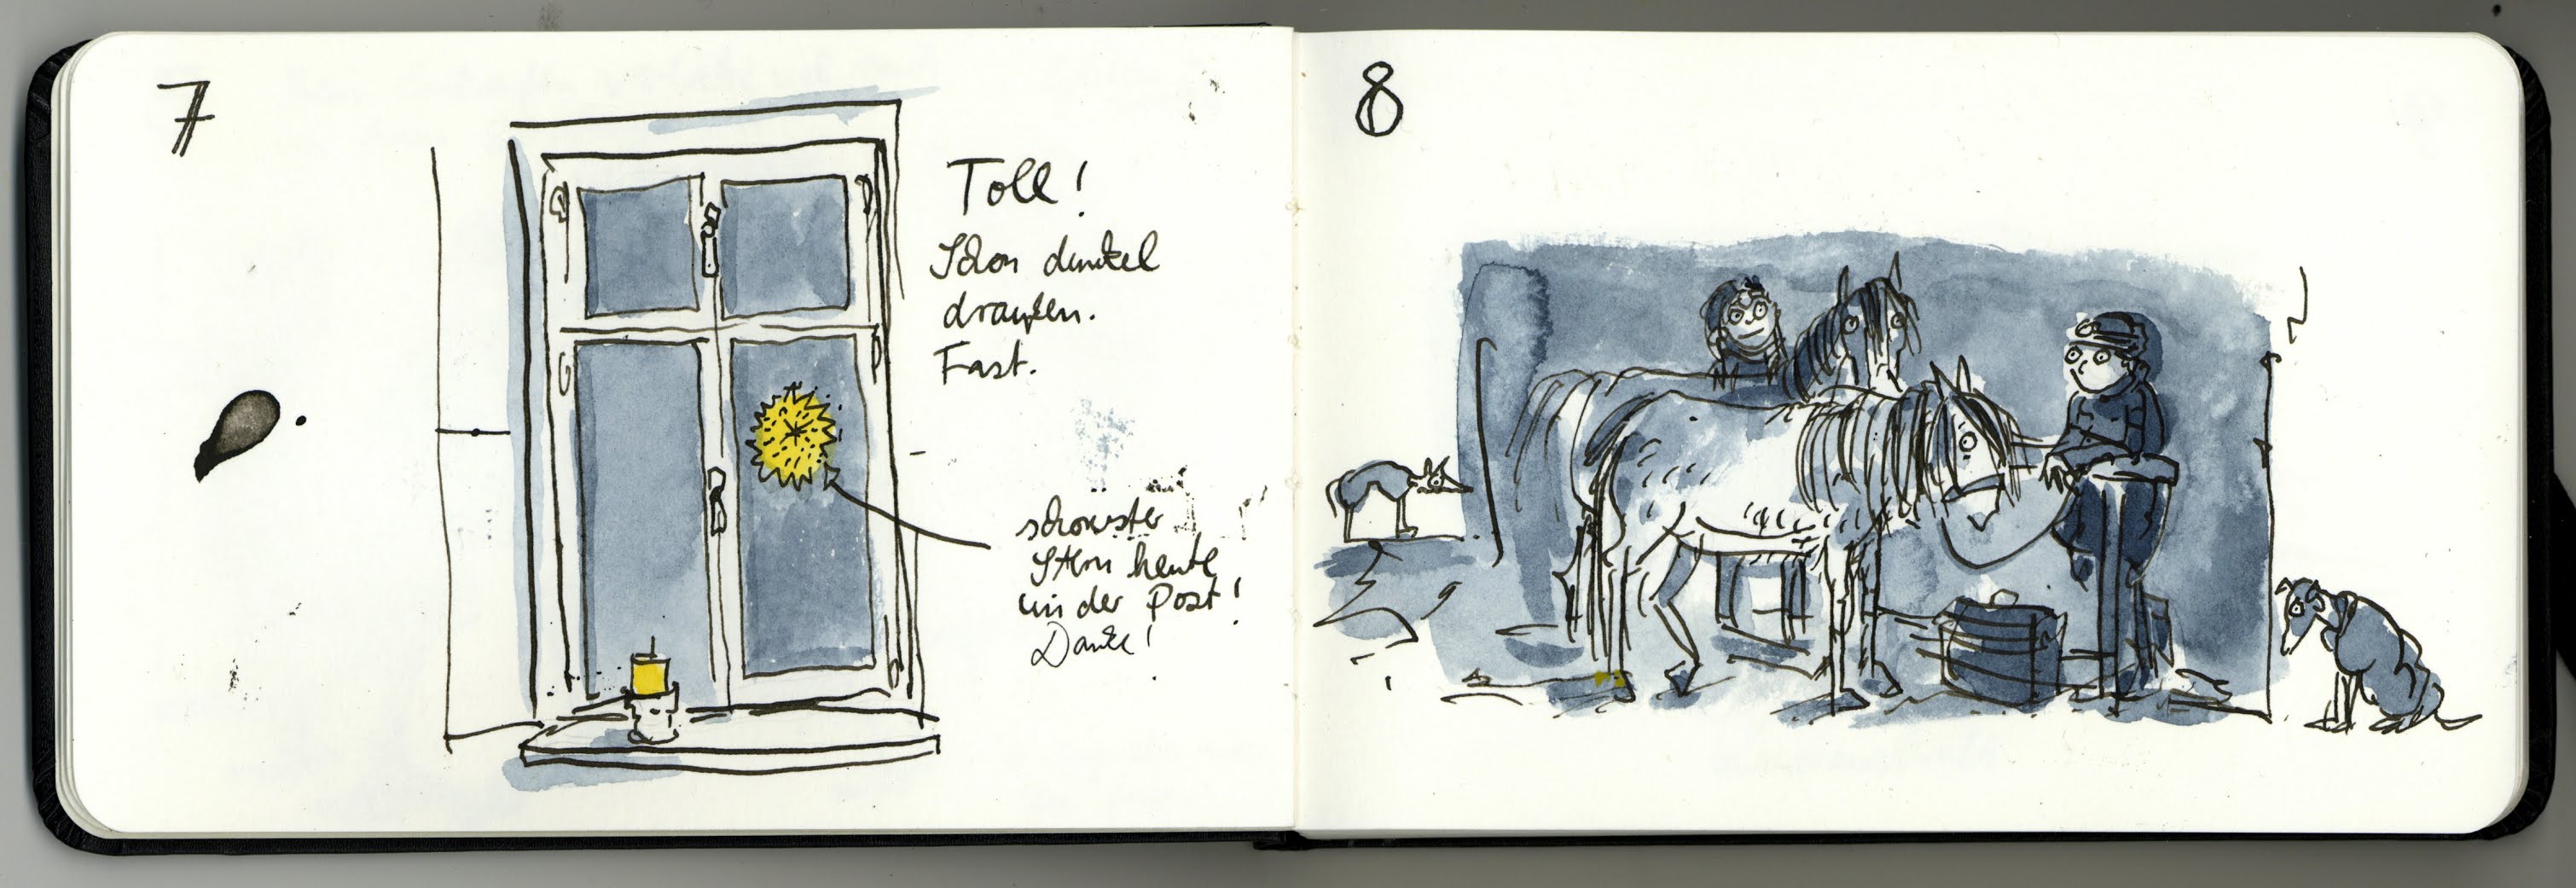 7
Toll!
Schon dunkel
draußen.
Fast.
schönster
Stern heute
in der Post!
Danke!
8